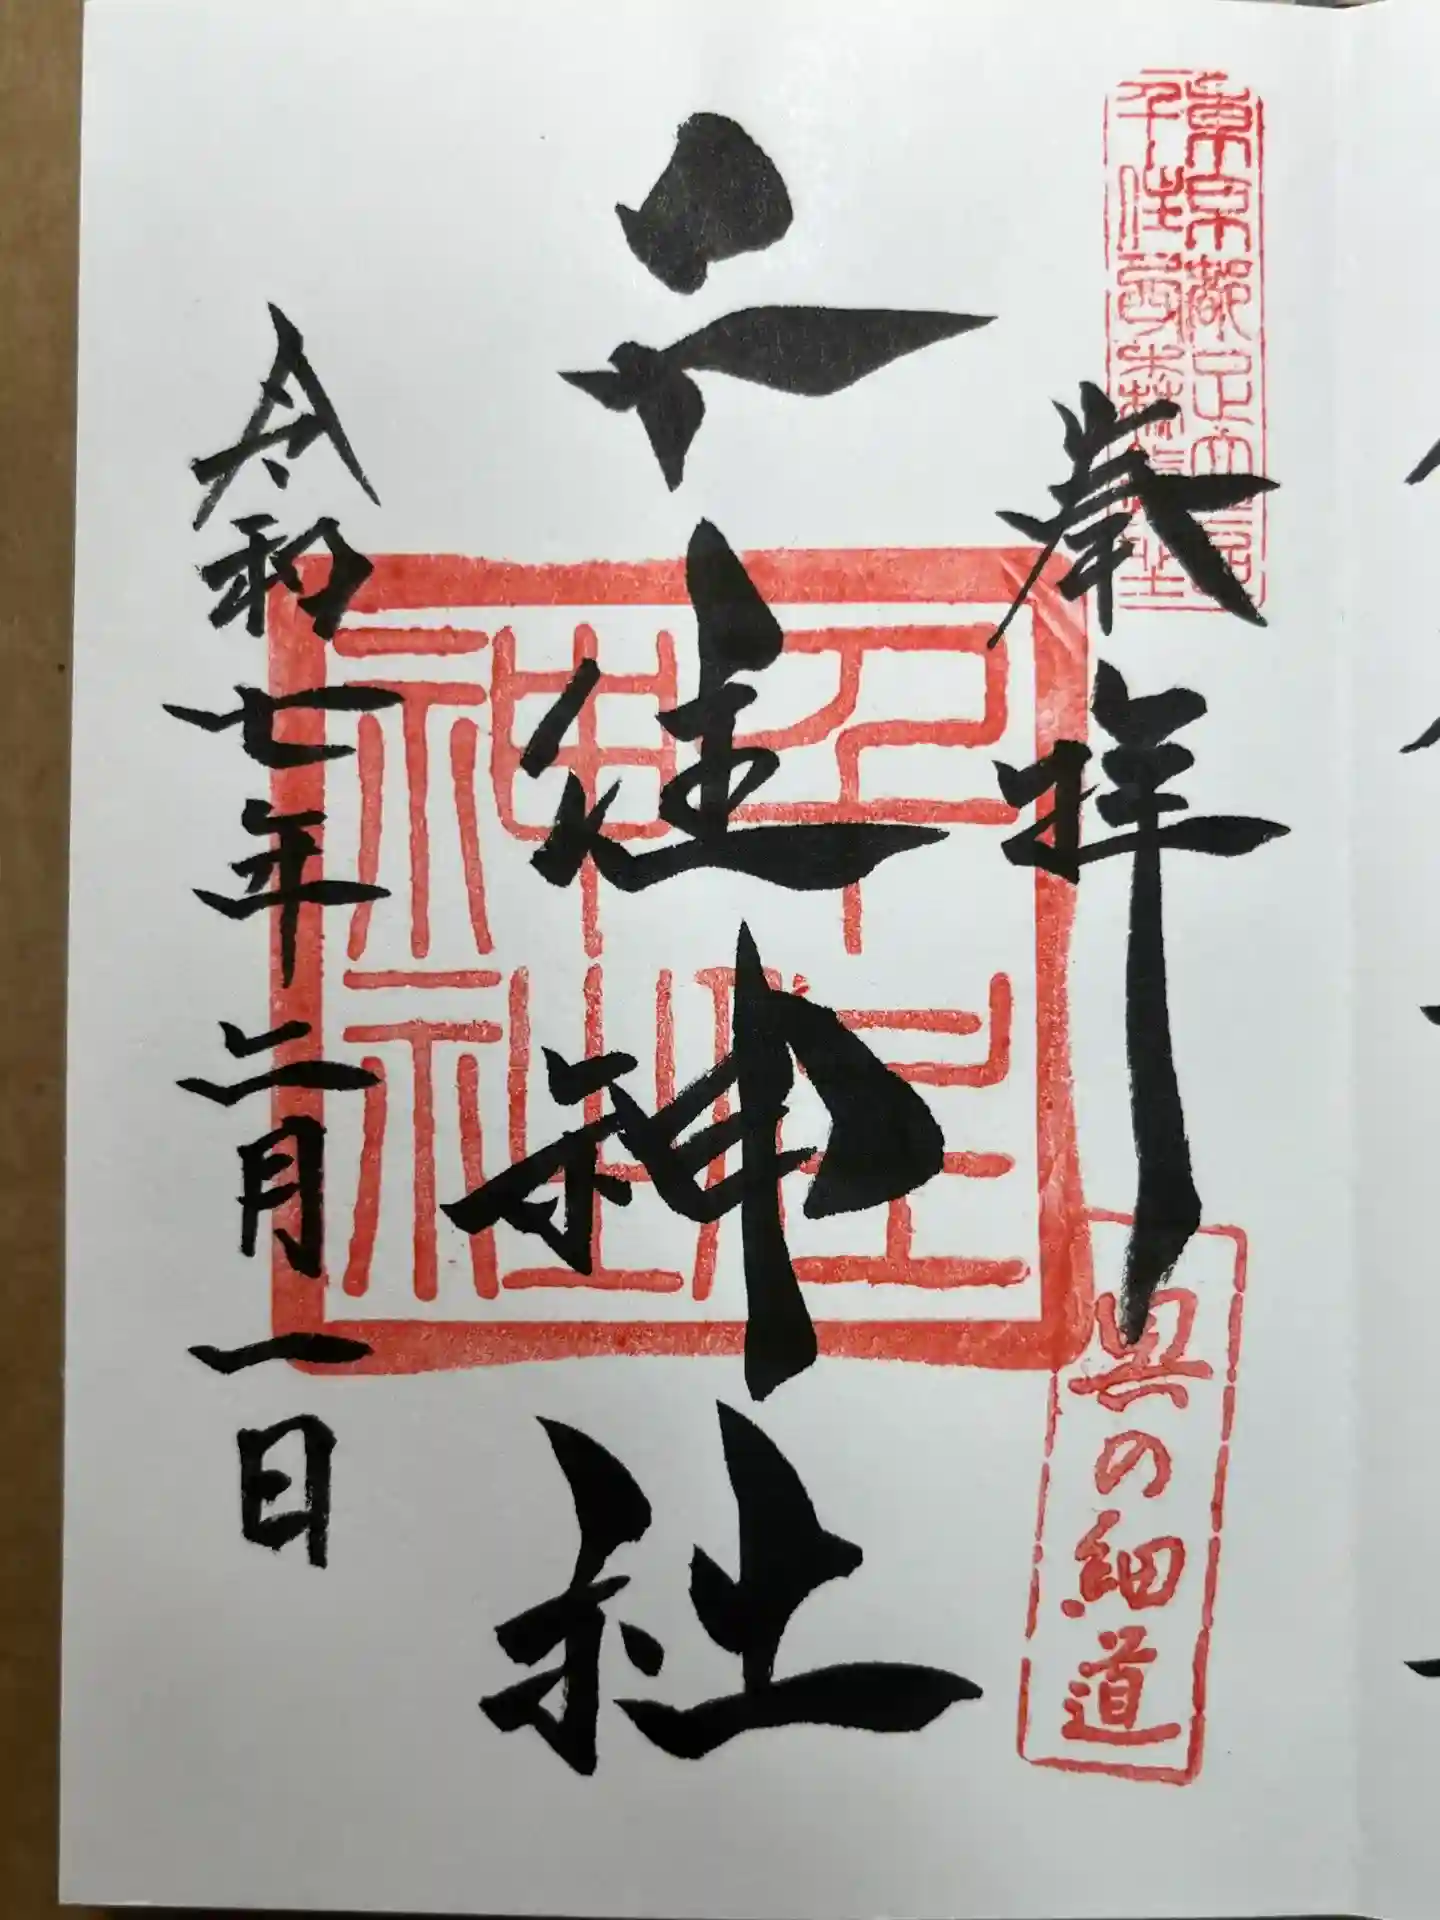 東京都足立區
千住西森鎮座
奉拝
奥の細道
千住神社
千住
神社
令和七年二月一日